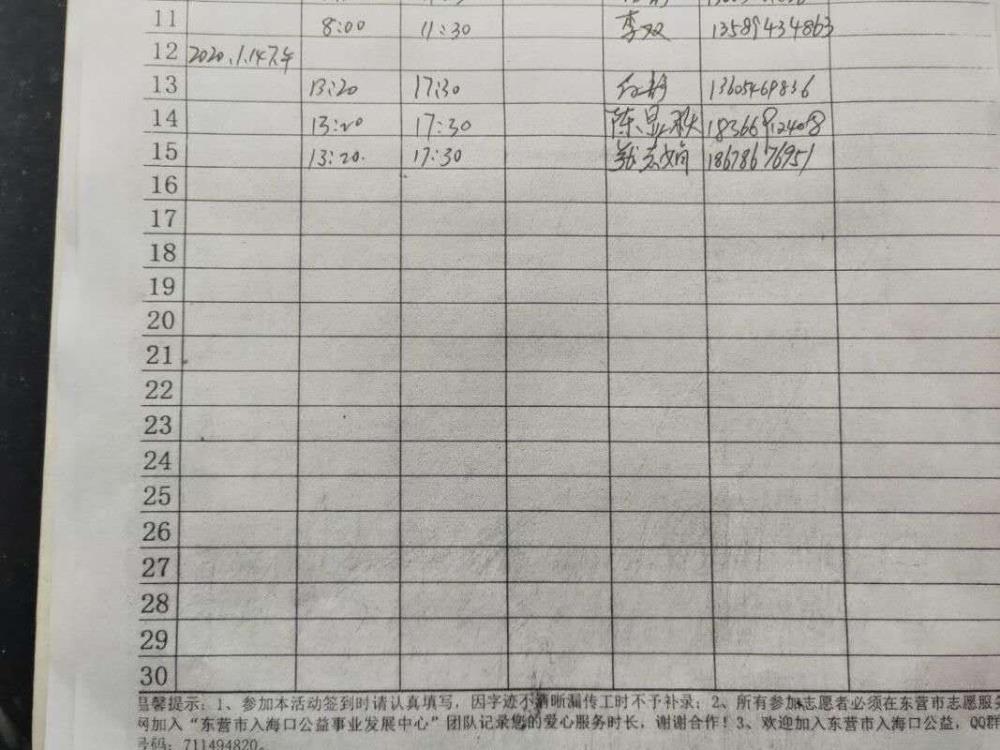 11 8:00 11:30 李双 13589434863
12 2020.1.14下午
13 13:20 17:30 13605469836
14 13:20 17:30 陈显秋
15 13:20. 17:30 18678676951
16
17
18
19
20
21
22
23
24
25
26
27
28
29
30
温馨提示：1、参加本活动签到时请认真填写，因字迹不清晰漏传工时不予补录；2、所有参加志愿者必须在东营市志愿服务
网加入“东营市入海口公益事业发展中心”团队记录您的爱心服务时长，谢谢合作！3、欢迎加入东营市入海口公益，QQ群
号码：711494820。